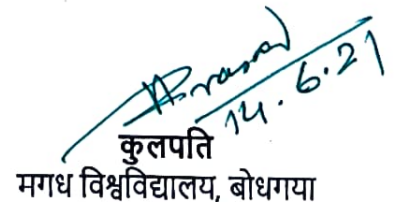 14.6.21
कुलपति
मगध विश्वविद्यालय, बोधगया